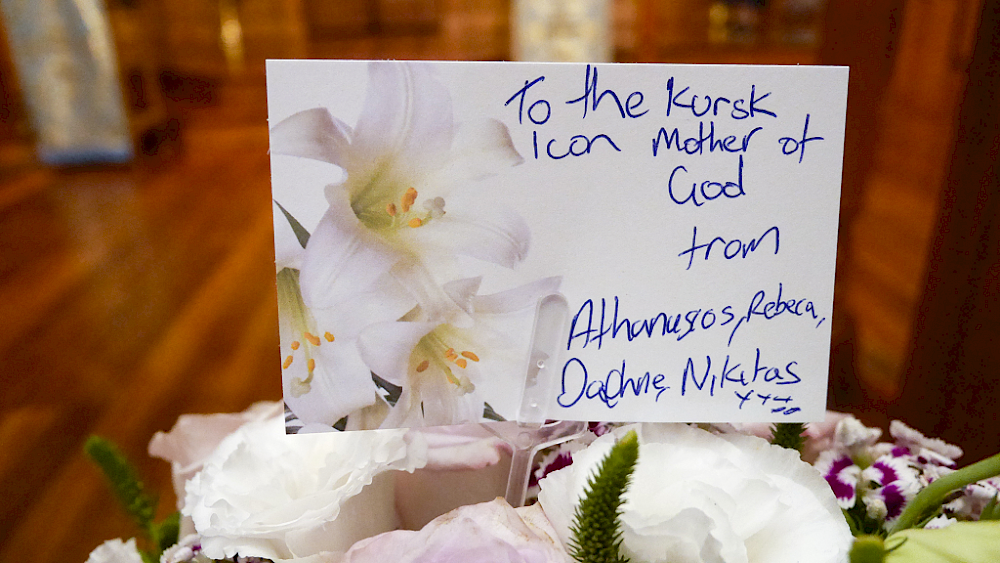 To the Kursk
Icon Mother of
God
from
Athanasios, Rebeca,
Daphne, Nikitas
xxx